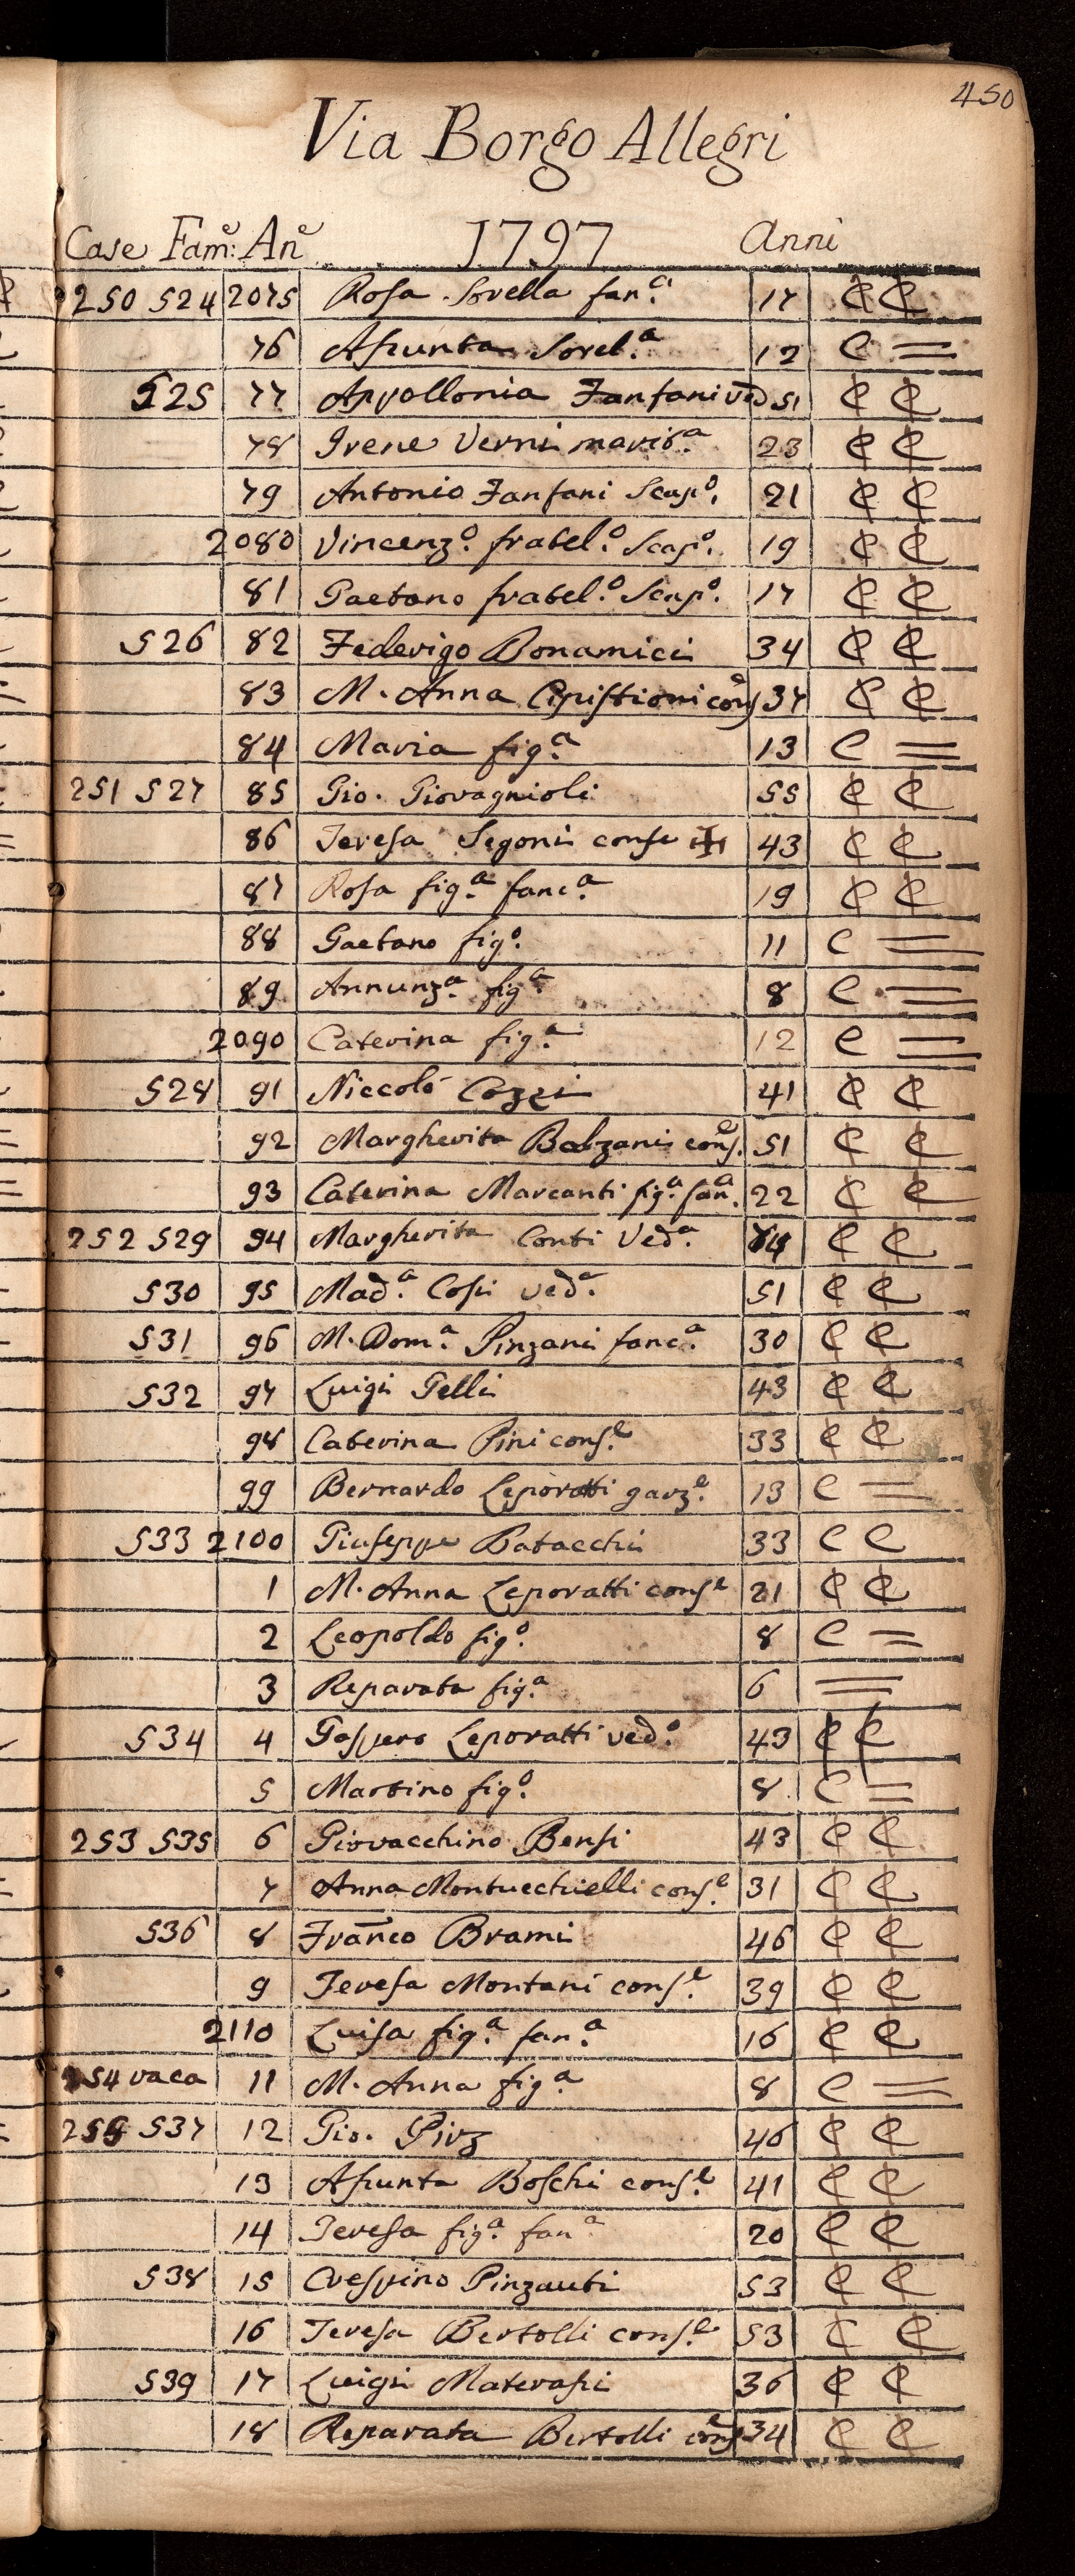 450
Via Borgo Allegri
Case Fam.e An.e 1797 Anni
250 524 2075 Rosa Sorella fan.a 17 C C
76 Asunta Sorel.a 12 C =
525 77 Appollonia Fanfani ved 51 C C
78 Irene Verni marit.a 23 C C
79 Antonio Fanfani Scap.o 21 C C
2080 Vincenz.o fratel.o Scap.o 19 C C
81 Gaetano fratel.o Scap.o 17 C C
526 82 Federigo Bonamici 34 C C
83 M. Anna cons.e 37 C C
84 Maria fig.a 13 C =
251 527 85 Gio. Giovagnioli 55 C C
86 Teresa Segoni conse 43 C C
87 Rosa fig.a fanc.a 19 C C
88 Gaetano fig.o 11 C =
89 Annunz.a fig.a 8 C =
2090 Caterina fig.a 12 C =
528 91 Niccoló Cozzi 41 C C
92 Margherita Balzani cons.e 51 C C
93 Caterina Marcanti fig.a fan.a 22 C C
252 529 94 Margherita Conti Ved.a C C
530 95 Mad.a Cosi ved.a 51 C C
531 96 M. Dom.a Pinzani fanc.a 30 C C
532 97 Luigi Gelli 43 C C
98 Caterina Pini cons.e 33 C C
99 Bernardo Leporatti garz.e 13 C =
533 2100 Giuseppe Batacchi 33 C C
1 M. Anna Leporatti cons.e 21 C C
2 Leopoldo fig.o 8 C =
3 Reparata fig.a 6 =
534 4 Gaspero Leporatti ved.o 43 C C
5 Martino fig.o 8 C =
253 535 6 Giovacchino Bensi 43 C C
7 Anna Montucchielli cons.e 31 C C
536 8 Franco Brami 46 C C
9 Teresa Montani cons.e 39 C C
2110 Luisa fig.a fan.a 16 C C
254 vaca 11 M. Anna fig.a 8 C =
255 537 12 Gio. Pirz 46 C C
13 Asunta Boschi cons.e 41 C C
14 Teresa fig.a fan.a 20 C C
538 15 Crespino Pinzauti 53 C C
16 Teresa Bertolli cons.e 53 C C
539 17 Luigi Materasi 36 C C
18 Reparata Bertolli cons.e 34 C C